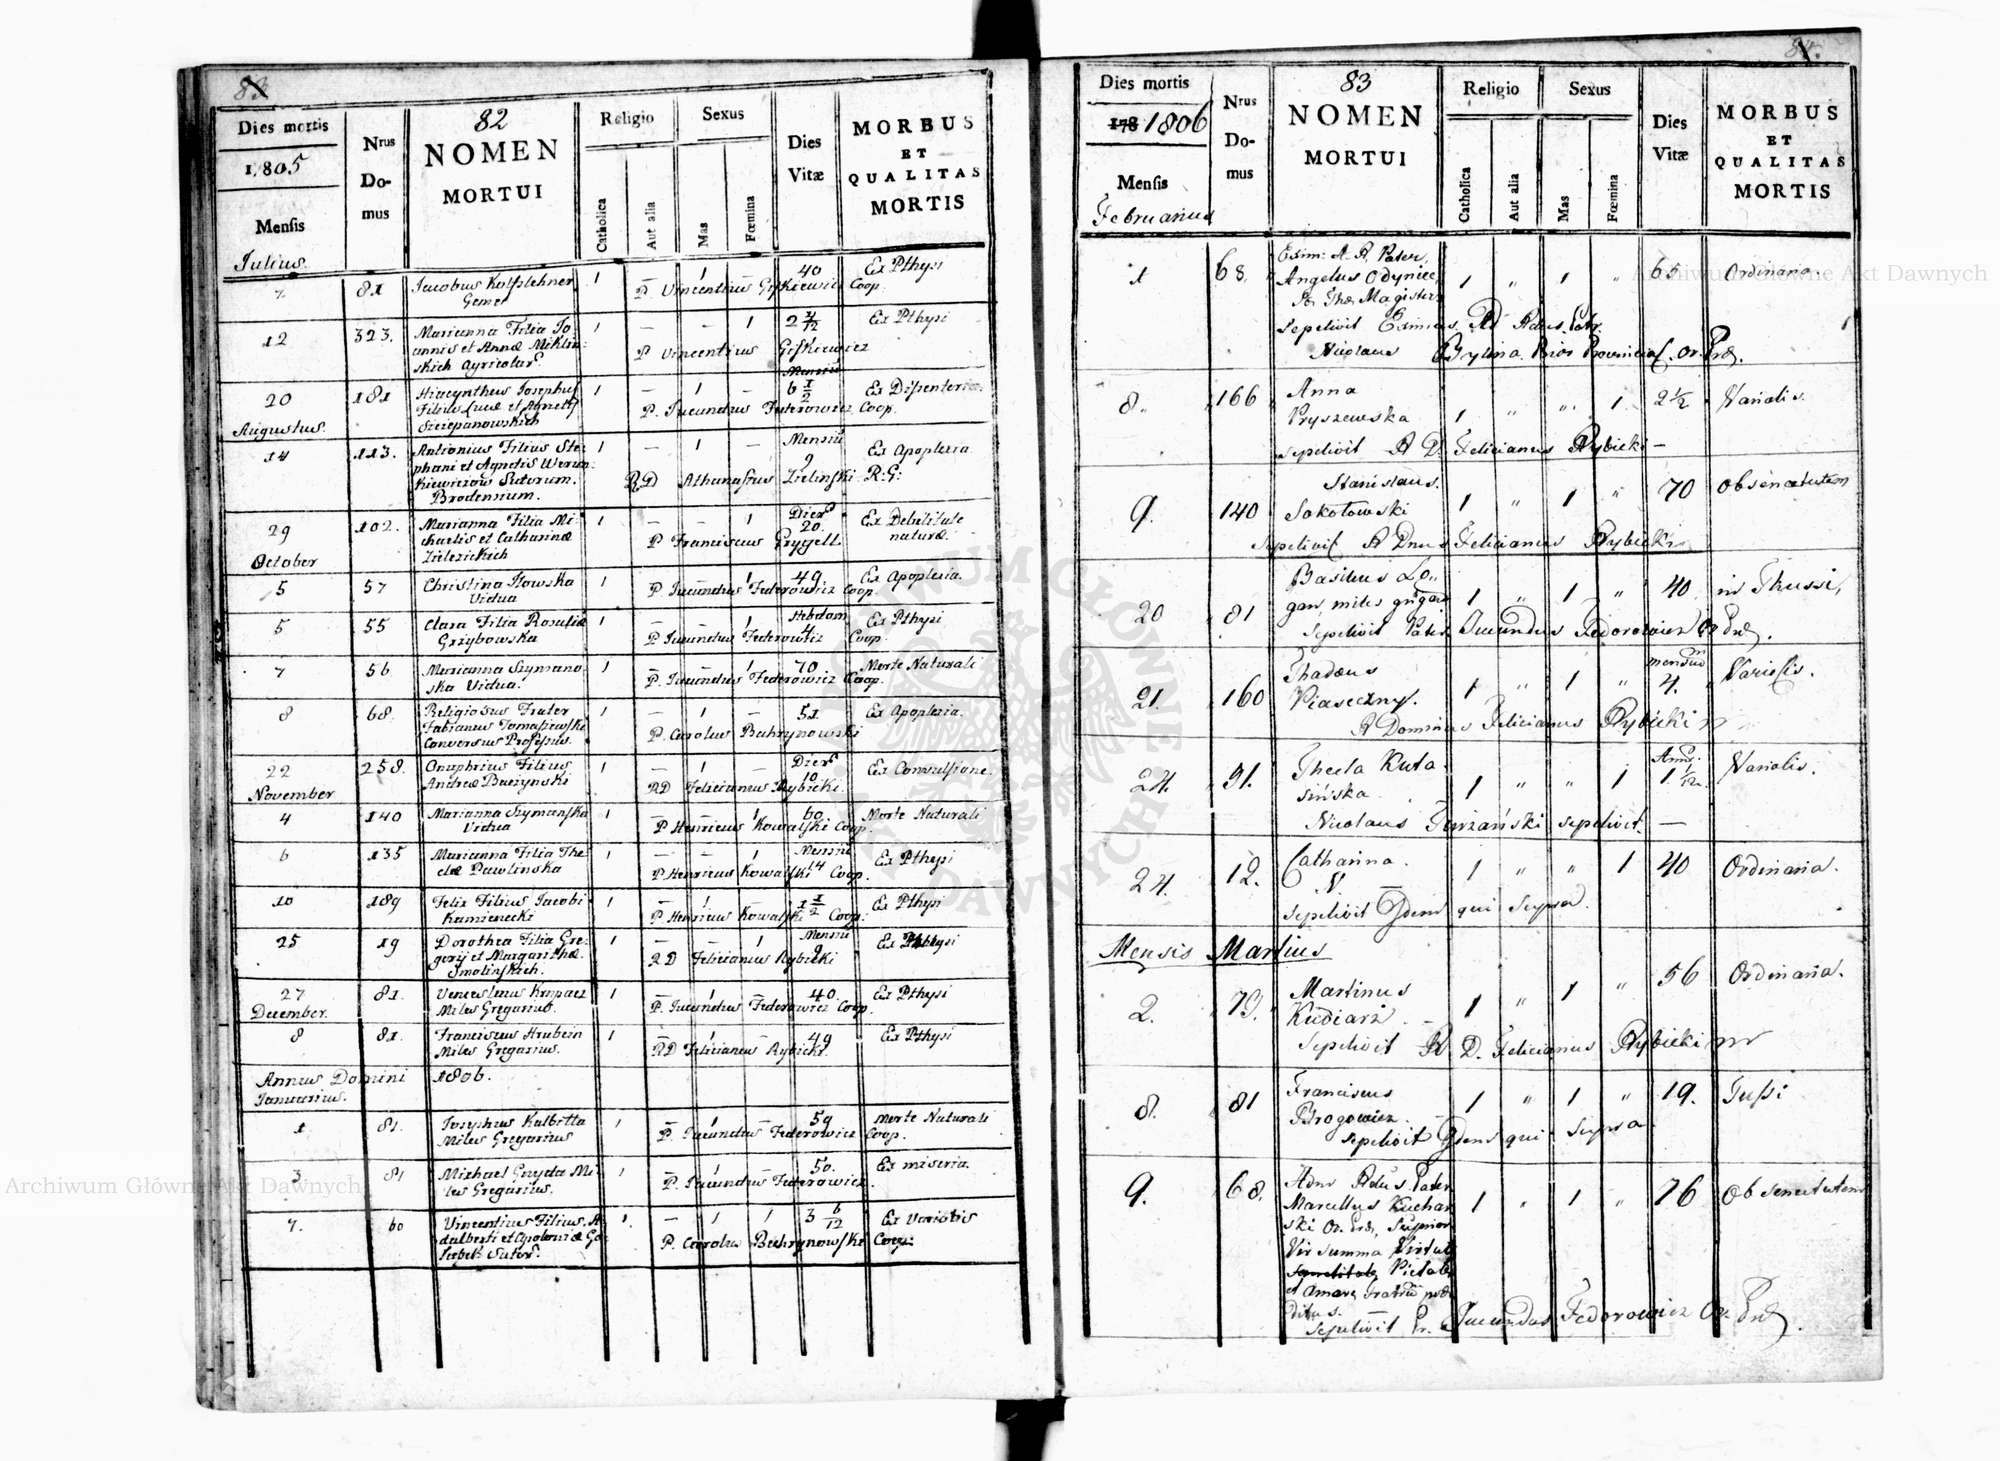 82
Dies mortis
1805
Mensis
Julius.
Nrus
Do-
mus
82
NOMEN
MORTUI
Religio
Catholica
Aut alia
Sexus
Mas
Fœmina
Dies
Vitæ
MORBUS
ET
QUALITAS
MORTIS
7. 81 Jacobus 1 — 1 — 40 Ex Pthysi
P. Vincentius Coop.
12 323. Marianna Filia Jo- 1 — — 1 2 4/12 Ex Pthysi
annis et Annæ Miklin-
skich Agricolar. P. Vincentius
20 181 Hiacynthus Josephus 1 — 1 — Mensiu 6 1/2 Ex Dissenteria
Filius Lucæ et Agnetis P. Jucundus Federowicz Coop.
Szczepanowskich
Augustus.
14 113. Antonius Filius Ste- 1 — 1 — Mensiu 9 Ex Apoplexia
phani et Agnetis
Sutorum. RD Athanasius Zielinski R.G:
Brodensium.
29 102. Marianna Filia Mi- 1 — — 1 Dier. 20. Ex Debilitate
chaelis et Catharinæ naturæ.
P Franciscus Grygell
October
5 57 Christina 1 — — 1 49 Ex Apoplexia.
Vidua P Jucundus Federowicz Coop.
5 55 Clara Filia Rosaliæ 1 — — 1 Hebdom 4 Ex Pthysi
Grzybowska P Jucundus Federowicz Coop.
7 56 Marianna Szymano- 1 — — 1 70 Morte Naturali
ska Vidua. P. Jucundus Federowicz Coop.
8 68. Religiosus Frater 1 — 1 — 51. Ex Apoplexia.
Fabianus Tomaszewski
Conversus Professus. P. Carolus Bahrynowski
22 258. Onuphrius Filius 1 — 1 — Dier. 10 Ex Convulsione.
Andreæ Buczynski RD Felicianus Rybicki.
November
4 140 Marianna Szymanska 1 — — 1 60 Morte Naturali
Vidua P Henricus Kowalski Coop.
6 135 Marianna Filia The- 1 — — 1 Mensiu 14 Ex Pthysi
clæ Pawlinska P Henricus Kowalski Coop.
10 189 Felix Filius Jacobi 1 — 1 — 1 1/2 Ex Pthysi
Kamienecki P Henricus Kowalski Coop:
25 19 Dorothea Filia Gre- 1 — — 1 Mensiu 9 Ex Pthysi
gorij et Margarithæ
Smolinskich. RD Felicianus Rybicki
27 81. Venceslaus Krupacz 1 — 1 — 40. Ex Pthysi
Miles Gregarius. P. Jucundus Federowicz Coop.
December.
8 81. Franciscus Hrubein 1 — 1 — 49 Ex Pthysi
Miles Gregarius. RD Felicianus Rybicki.
Annus Domini 1806.
Januarius.
1 81. Josephus Kalbetta 1 — 1 — 59 Morte Naturali
Miles Gregarius P. Jucundus Federowicz Coop.
3 81 Michael Guzda Mi- 1 — 1 — 50. Ex miseria.
les Gregarius. P. Jucundus Federowicz.
7. 60 Vincentius Filius A- 1. — 1 1 3 6/12 Ex Variolis
dalberti et Apoloniæ Go-
Sutor. P. Carolus Bahrynowski Coop:
84.
Dies mortis
178 1806
Mensis
Februarius
Nrus
Do-
mus
83
NOMEN
MORTUI
Religio
Catholica
Aut alia
Sexus
Mas
Fœmina
Dies
Vitæ
MORBUS
ET
QUALITAS
MORTIS
1 68. Exim: A. R. Pater, 1 " 1 " 65 Ordinaria.
Angelus Odyniec,
Sæ Thæ Magister
sepelivit Eximius Ad Rdus. Patr.
Nicolaus Bylina Prior Provincial. Or. Præd.
8. 166 Anna 1 " " 1 2 1/2 Variolis.
Pryszewska
sepelivit R D. Felicianus Rybicki —
9. 140 Stanislaus. 1 " 1 " 70 Ob senectutem
Sokołowski
Sepelivit R Dnus Felicianus Rybicki
20 81 Basilius Lo- 1 " 1 " 40 in Thussi,
gan, miles grigari
Sepelivit Pater Jucundus Fedorowicz Or Præd.
21. 160 Thadæus 1 " 1 " mensiu 4. Variolis.
Piaseczny.
R Dominus Felicianus Rybicki
24. 91. Thecla Kuta- 1 " " 1 Annr. 1 1/12 Variolis.
sińska.
Nicolaus Turżański sepelivit. —
24. 12. Catharina. 1 " " 1 40 Ordinaria.
N. —
sepelivit Idem qui supra.
Mensis Martius
2. 79. Martinus 1 " 1 " 56 Ordinaria.
Kudiarz. —
Sepelivit R D. Felicianus Rybicki
8. 81 Franciscus 1 " 1 " 19. Tussi
Brogowicz.
sepelivit Idem qui supra.
9. 68. Adm Rdus. Pater 1 " 1 " 76 Ob senectutem
Marcellus Kuchar-
ski Or. Præd, Suprior
Vir summa Virtute
Pietate
et Amore Fratrū præ-
ditus.
Sepelivit Pr. Jucundus Fedorowicz Or. Præd.
Archiwum Główne Akt Dawnych
Archiwum Główne Akt Dawnych
ARCHIWUM GŁÓWNE AKT DAWNYCH